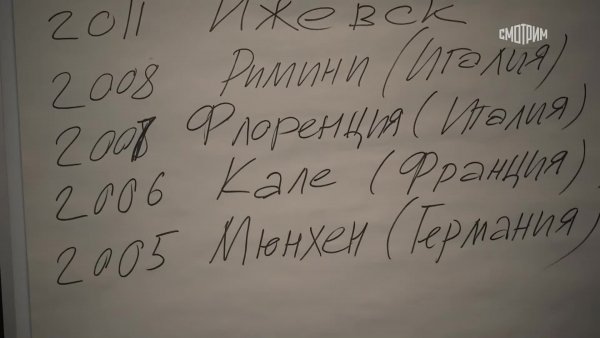 СМОТРИМ
2011 Ижевск
2008 Римини (Италия)
2007 Флоренция (Италия)
2006 Кале (Франция)
2005 Мюнхен (Германия)